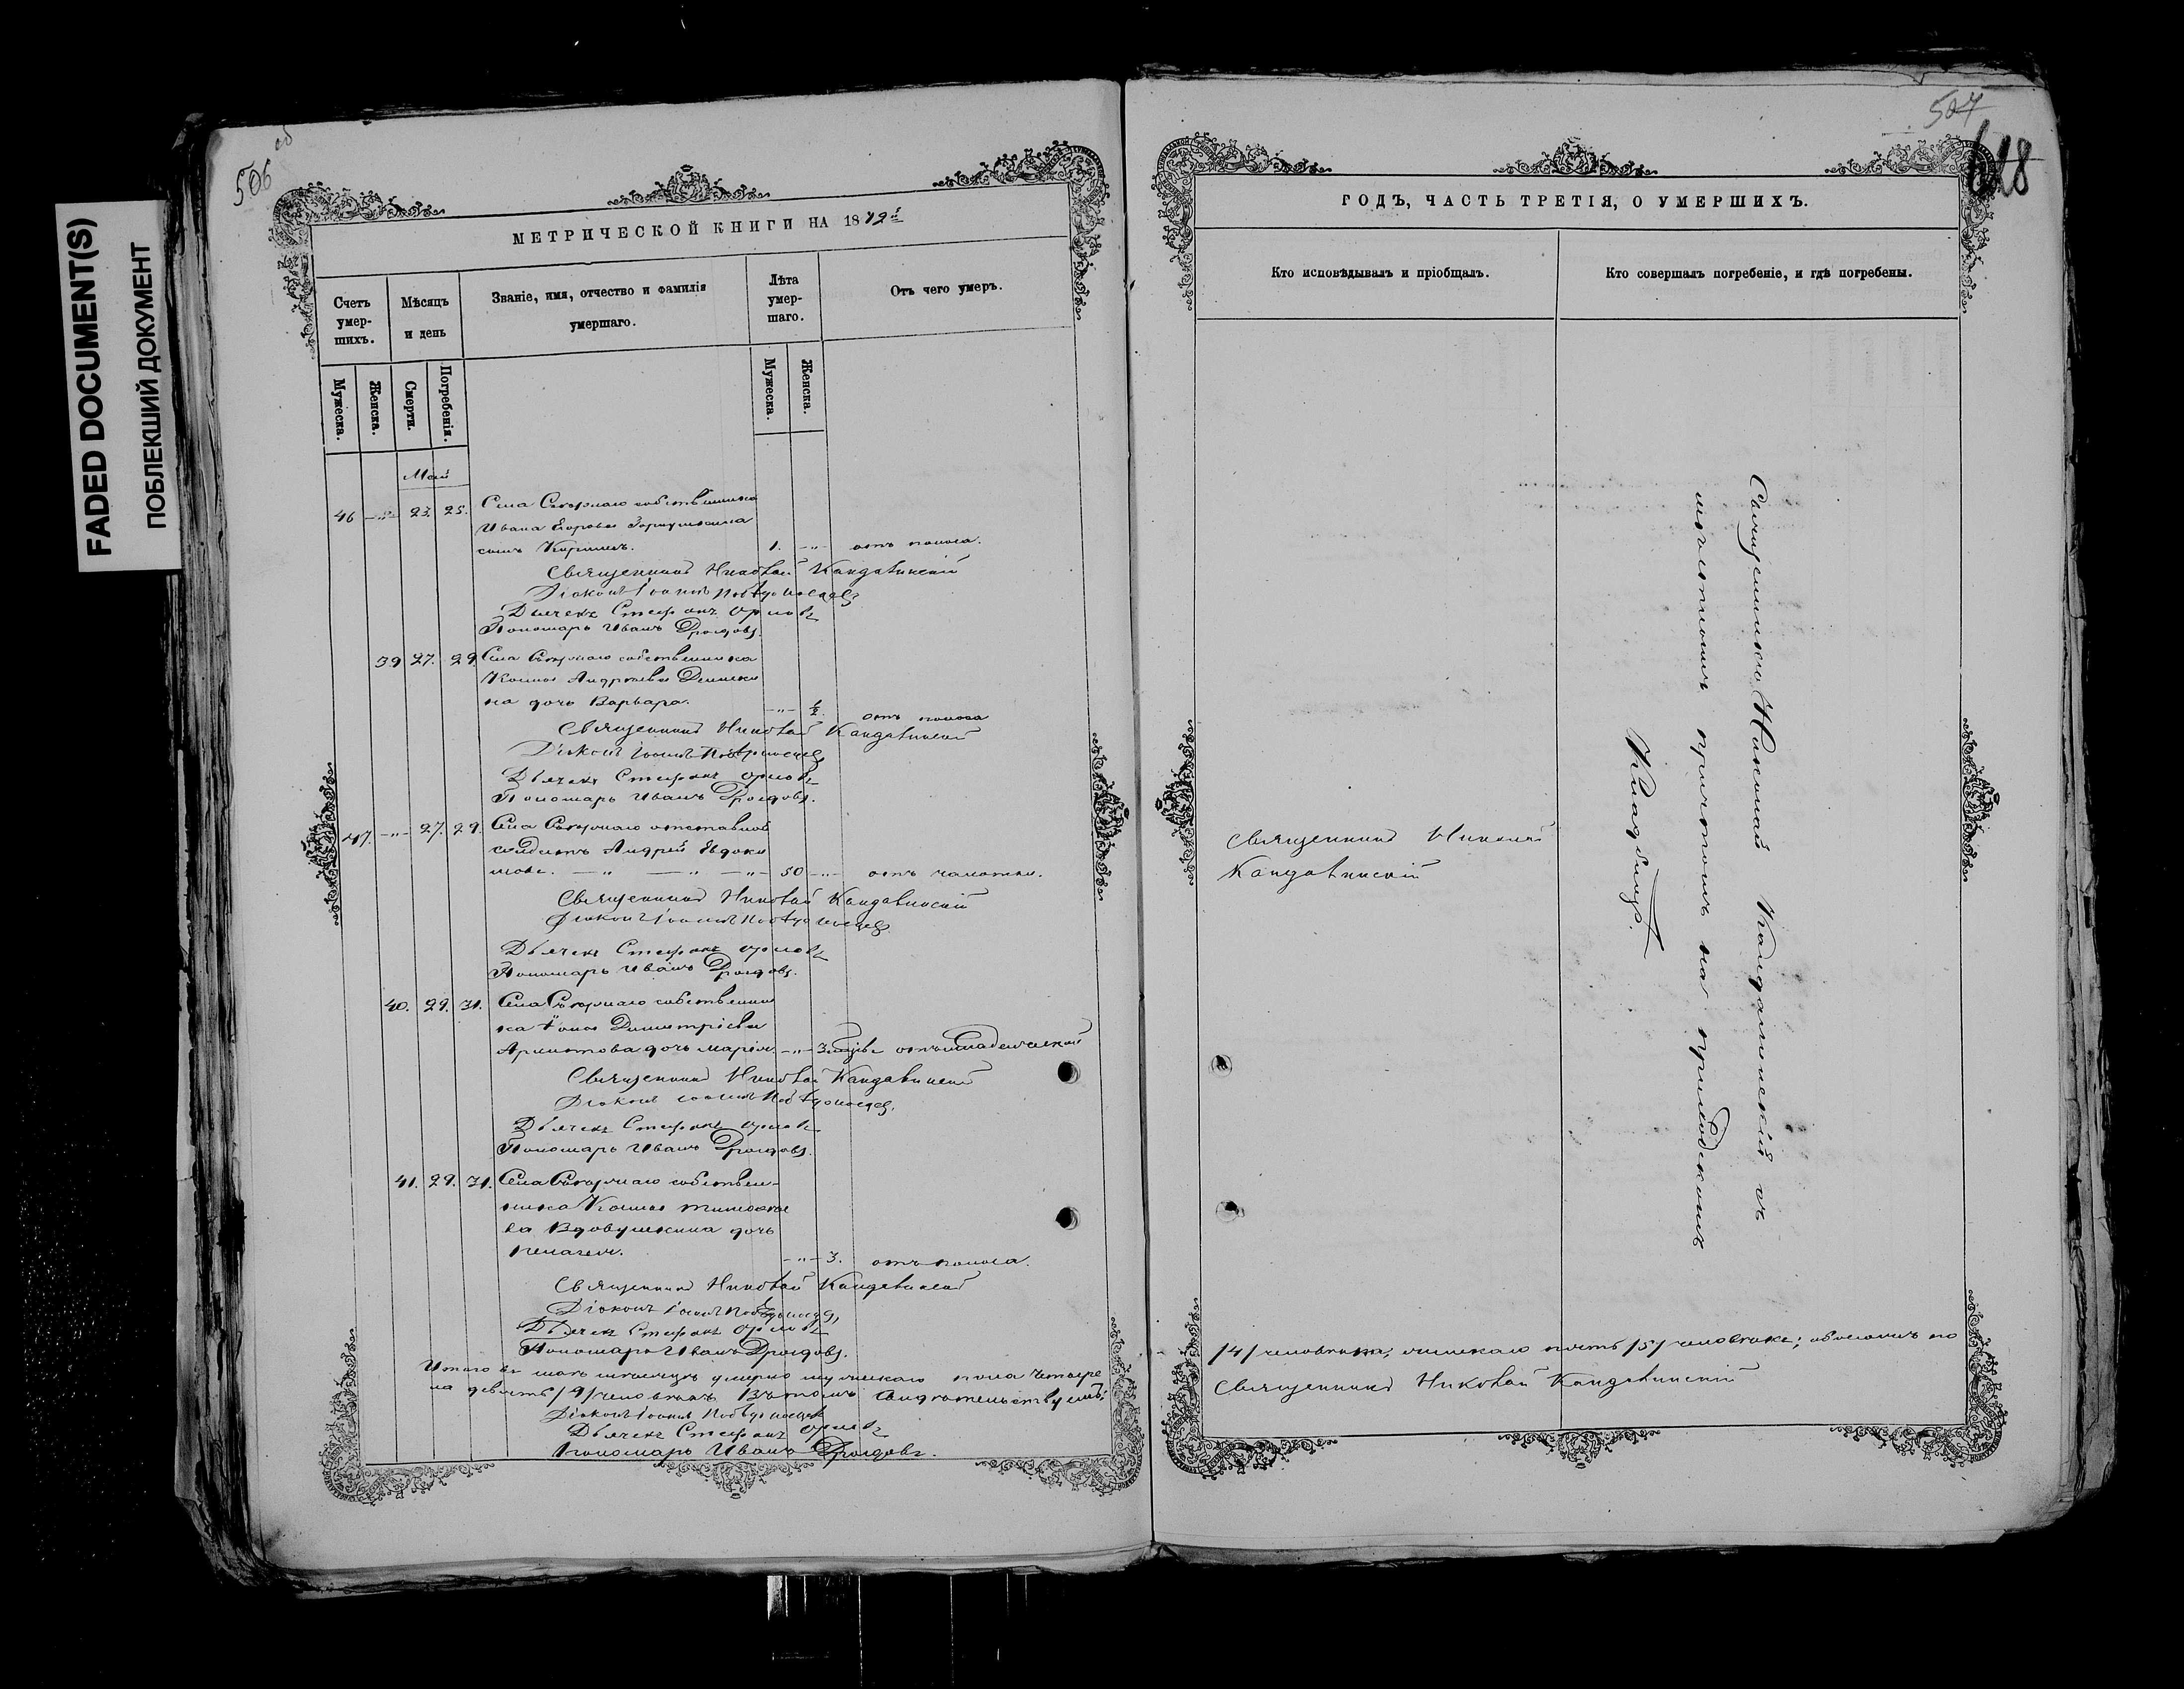 FADED DOCUMENT(S)
ПОБЛЕКШИЙ ДОКУМЕНТ
506 об
МЕТРИЧЕСКОЙ КНИГИ НА 1872й
Счетъ умершихъ.
Мѣсяцъ и день
Званіе, имя, отчество и фамилія умершаго.
Лѣта умершаго.
Отъ чего умеръ.
Мужеска.
Женска.
Смерти.
Погребенія.
Мужеска.
Женска.
Май
46 -"- 23. 25. Села собственника
Ивана Егорова
сынъ 1. -"- отъ поноса.
Священникъ Николай Кандавинскій
Діаконъ Іоаннъ Побѣдоносцевъ
Дьячекъ Стефанъ Орловъ
Пономарь Иванъ Дроздовъ.
39 27. 29. Села собственника
Космы Андреева
на дочь Варвара. -"- ½. отъ поноса
Священникъ Николай Кандавинскій
Діаконъ Іоаннъ Побѣдоносцевъ
Дьячекъ Стефанъ Орловъ
Пономарь Иванъ Дроздовъ.
47. -"- 27. 29. Села отставной
солдатъ Андрей Евдоки
мовъ. -"- -"- -"- 50 -"- отъ чахотки.
Священникъ Николай Кандавинскій
Діаконъ Іоаннъ Побѣдоносцевъ
Дьячекъ Стефанъ Орловъ
Пономарь Иванъ Дроздовъ.
40. 29. 31. Села собственни
ка Димитріева
дочь Марія. -"- отъ младенческой
Священникъ Николай Кандавинскій
Діаконъ Іоаннъ Побѣдоносцевъ.
Дьячекъ Стефанъ Орловъ
Пономарь Иванъ Дроздовъ.
41. 29. 31. Села собствен-
ника Космы Тимофее
ва Вдовушкина дочь
Пелагея. -"- 3. отъ поноса.
Священникъ Николай Кандавинскій
Діаконъ Іоаннъ Побѣдоносцевъ
Дьячекъ Стефанъ Орловъ
Пономарь Иванъ Дроздовъ.
Итого въ маѣ мѣсяцѣ умерло мужескаго пола четыре
на девять /9/ человѣкъ Въ томъ свидѣтельствуемъ:
Діаконъ Іоаннъ Побѣдоносцевъ
Дьячекъ Стефанъ Орловъ
Пономарь Иванъ Дроздовъ.
507
628
ГОДЪ, ЧАСТЬ ТРЕТІЯ, О УМЕРШИХЪ.
Кто исповѣдывалъ и пріобщалъ.
Кто совершалъ погребеніе, и гдѣ погребены.
Священникъ Николай
Кандавинскій
Священникъ Николай Кандавинскій съ
причтомъ на приходскомъ
Кладбищѣ.
/4/ человѣка, женскаго пять /5/ человѣкъ; обоего по
Священникъ Николай Кандавинскій